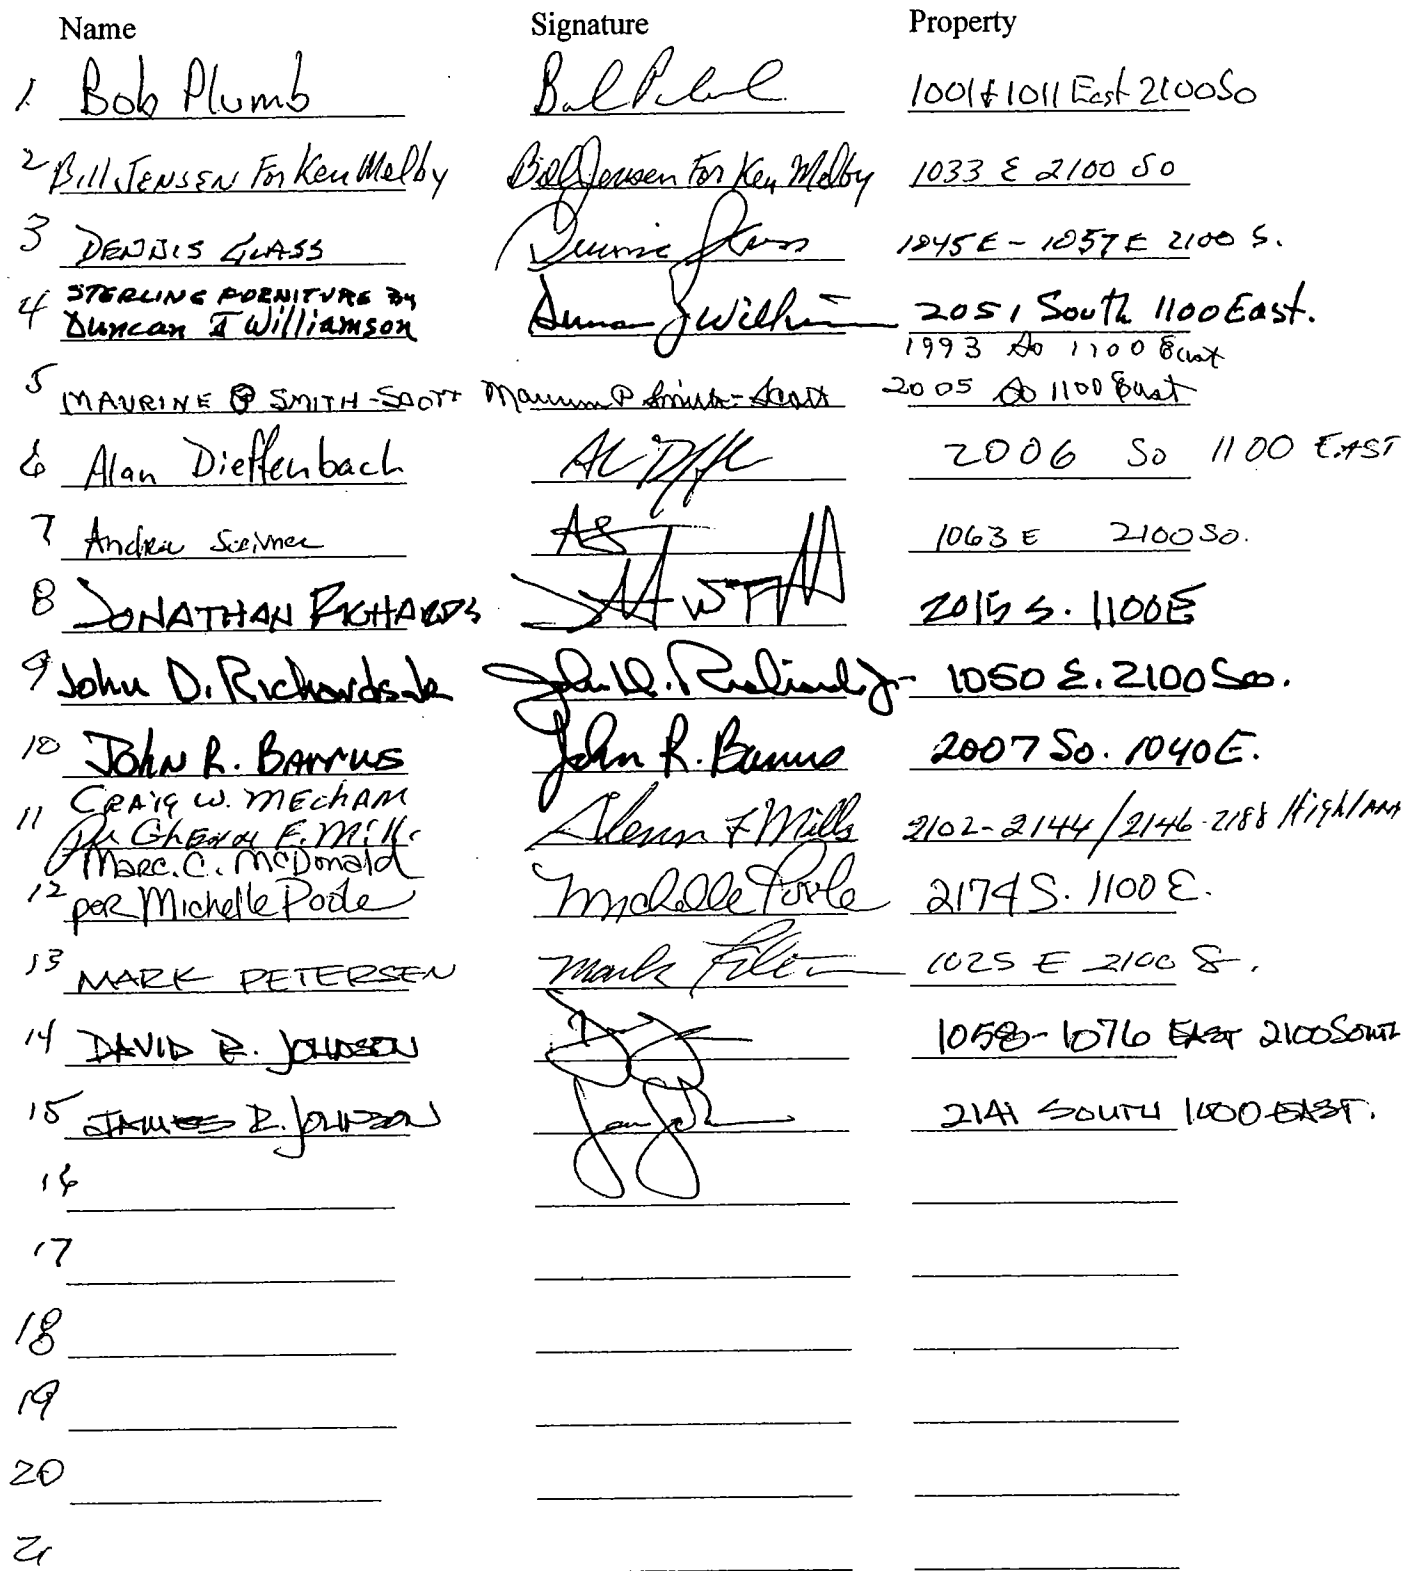 Name Signature Property
1. Bob Plumb 1001 & 1011 East 2100 So
2 Bill JENSEN For Ken Melby Bill Jensen For Ken Melby 1033 E 2100 So
3 DENNIS GLASS 1045 E - 1057 E 2100 S.
STERLING FURNITURE By
4 Duncan J Williamson 2051 South 1100 East.
1993 So 1100 East
5 MAURINE P SMITH-SCOTT Maurine P Smith-Scott 2005 So 1100 East
6 Alan Dieffenbach 2006 So 1100 EAST
7 Andrea 1063 E 2100 So.
8 JONATHAN RICHARDS 2015 S. 1100 E
9 John D. Richards Jr John D. Richards Jr 1050 E. 2100 So.
10 John R. BARRUS John R. Barrus 2007 So. 1040 E.
CRAIG W. MECHAM
11 Dr F. Mills Glenn F Mills 2102-2144/2146-2188 Highland
Marc. C. McDonald
12 per Michelle Poole Michelle Poole 2174 S. 1100 E.
13 MARK PETERSEN Mark 1025 E 2100 S.
14 DAVID R. JOHNSON 1058-1076 EAST 2100 SOUTH
15 JAMES R. JOHNSON 2141 SOUTH EAST.
16
17
18
19
20
21